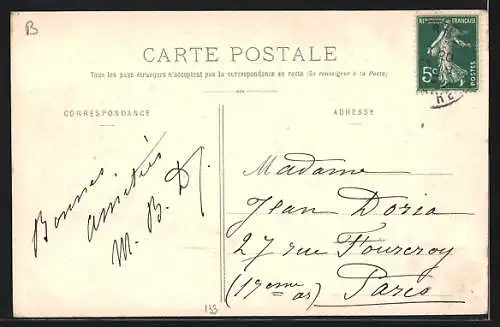 B
CARTE POSTALE
Tous les pays étrangers n'acceptent pas la correspondance au recto (Se renseigner à la Poste)
CORRESPONDANCE
ADRESSE
Bonnes
amitiés
M. B. D.
Madame
Jean Doria
27 rue Fourcroy
(17eme ar) Paris
193
FRANÇAISE
5c
POSTES